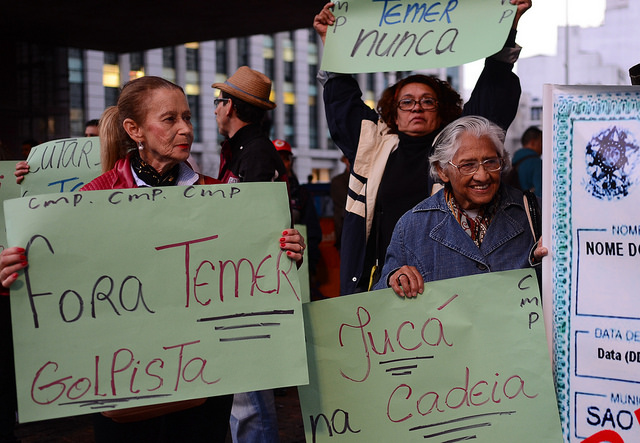 TEMER
nunca
CUTAR
CMP. CMP. CMP
FORA TEMER
GOLPISTA
CMP
Jucá
na Cadeia
NOME DO
DATA DE
Data (DD
MUNI
SAO